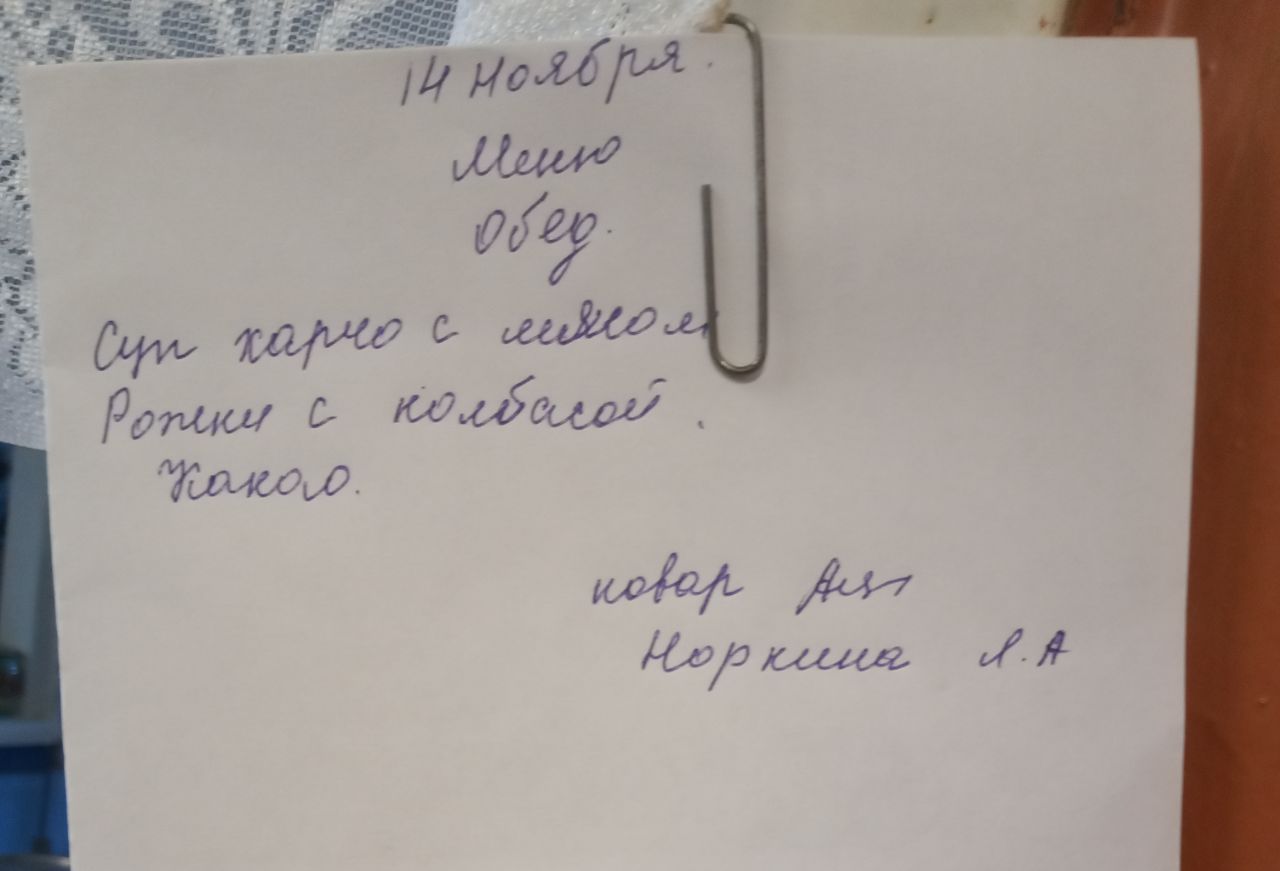 14 ноября.
Меню
Обед.
Суп харчо с мясом
Рожки с колбасой.
Какао.
повар
Норкина Л.А